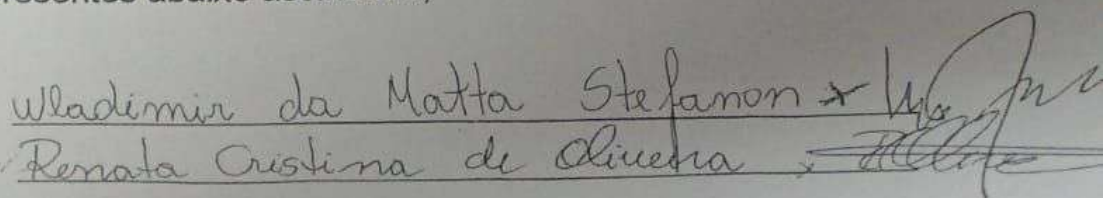 abaixo
Wladimir da Matta Stefanon x
Renata Cristina de Oliveira